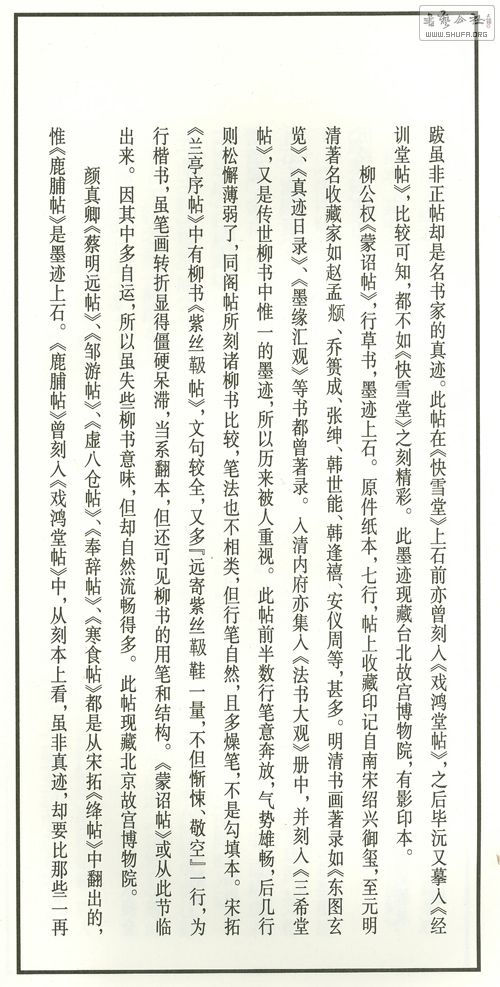 書藝公社
WWW.SHUFA.ORG
跋虽非正帖却是名书家的真迹。此帖在《快雪堂》上石前亦曾刻入《戏鸿堂帖》,之后毕沅又摹入《经
训堂帖》,比较可知,都不如《快雪堂》之刻精彩。此墨迹现藏台北故宫博物院,有影印本。
柳公权《蒙诏帖》,行草书,墨迹上石。原件纸本,七行,帖上收藏印记自南宋绍兴御玺,至元明
清著名收藏家如赵孟頫、乔篑成、张绅、韩世能、韩逢禧、安仪周等,甚多。明清书画著录如《东图玄
览》、《真迹日录》、《墨缘汇观》等书都曾著录。入清内府亦集入《法书大观》册中,并刻入《三希堂
帖》,又是传世柳书中惟一的墨迹,所以历来被人重视。此帖前半数行笔意奔放,气势雄畅,后几行
则松懈薄弱了,同阁帖所刻诸柳书比较,笔法也不相类,但行笔自然,且多燥笔,不是勾填本。宋拓
《兰亭序帖》中有柳书《紫丝靸帖》,文句较全,又多『远寄紫丝靸鞋一量,不但惭悚、敬空』一行,为
行楷书,虽笔画转折显得僵硬呆滞,当系翻本,但还可见柳书的用笔和结构。《蒙诏帖》或从此节临
出来。因其中多自运,所以虽失些柳书意味,但却自然流畅得多。此帖现藏北京故宫博物院。
颜真卿《蔡明远帖》、《邹游帖》、《虚八仓帖》、《奉辞帖》、《寒食帖》都是从宋拓《绛帖》中翻出的,
惟《鹿脯帖》是墨迹上石。《鹿脯帖》曾刻入《戏鸿堂帖》中,从刻本上看,虽非真迹,却要比那些一再